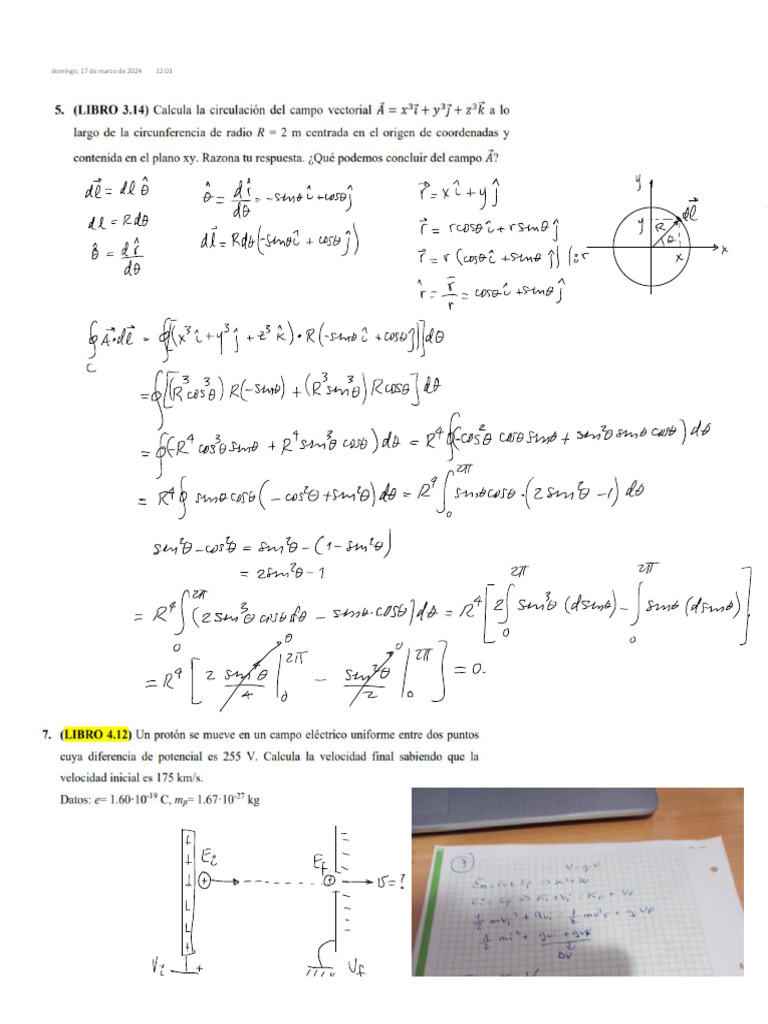 domingo, 17 de marzo de 2024 12:03
5. (LIBRO 3.14) Calcula la circulación del campo vectorial A⃗ = x³i⃗ + y³j⃗ + z³k⃗ a lo
largo de la circunferencia de radio R = 2 m centrada en el origen de coordenadas y
contenida en el plano xy. Razona tu respuesta. ¿Qué podemos concluir del campo A⃗?
dl⃗ = dl θ̂
dl = Rdθ
θ̂ = dr̂/dθ
θ̂ = dr̂/dθ = -senθî + cosθĵ
dl⃗ = Rdθ(-senθî + cosθĵ)
r⃗ = xî + yĵ
r⃗ = rcosθî + rsenθĵ
r⃗ = r(cosθî + senθĵ) |:r
r̂ = r⃗/r = cosθî + senθĵ
y
dl⃗
y R
θ
x x
∮A⃗·dl⃗ = ∮[(x³î + y³ĵ + z³k̂)·R(-senθî + cosθĵ)]dθ
C
= ∮[(R³cos³θ)R(-senθ) + (R³sen³θ)Rcosθ]dθ
= ∮(-R⁴cos³θsenθ + R⁴sen³θcosθ)dθ = R⁴∮(-cos²θcosθsenθ + sen²θsenθcosθ)dθ
= R⁴∮senθcosθ(-cos²θ + sen²θ)dθ = R⁴∫₀^2π senθcosθ·(2sen²θ - 1)dθ
sen²θ - cos²θ = sen²θ - (1 - sen²θ)
= 2sen²θ - 1
= R⁴∫₀^2π (2sen³θcosθdθ - senθ·cosθ)dθ = R⁴[2∫₀^2π sen³θ(dsenθ) - ∫₀^2π senθ(dsenθ)]
= R⁴[2 sen⁴θ/4 |₀^2π - sen²θ/2 |₀^2π] = 0.
0 0
7. (LIBRO 4.12) Un protón se mueve en un campo eléctrico uniforme entre dos puntos
cuya diferencia de potencial es 255 V. Calcula la velocidad final sabiendo que la
velocidad inicial es 175 km/s.
Datos: e= 1.60·10⁻¹⁹ C, mₚ= 1.67·10⁻²⁷ kg
Ei
Ef
v = ?
Vi +
Vf
7
Ki + Vi = Kf + Vf
ΔV